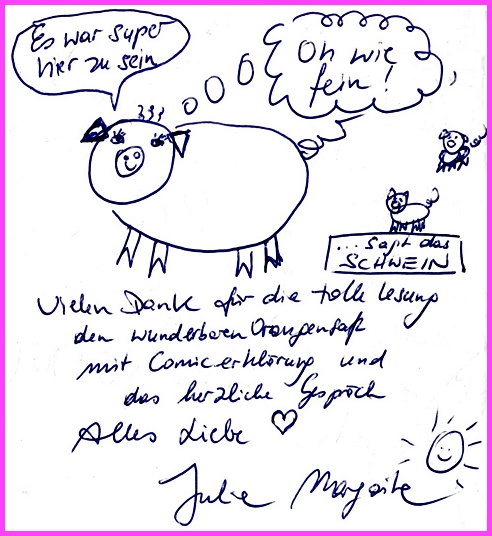 Es war super
hier zu sein
Oh wie
fein!
... sagt das
SCHWEIN
Vielen Dank für die tolle Lesung
den wunderbaren Orangensaft
mit Comicerklärung und
das herzliche Gespräch
Alles Liebe ♡
Julie Margarite